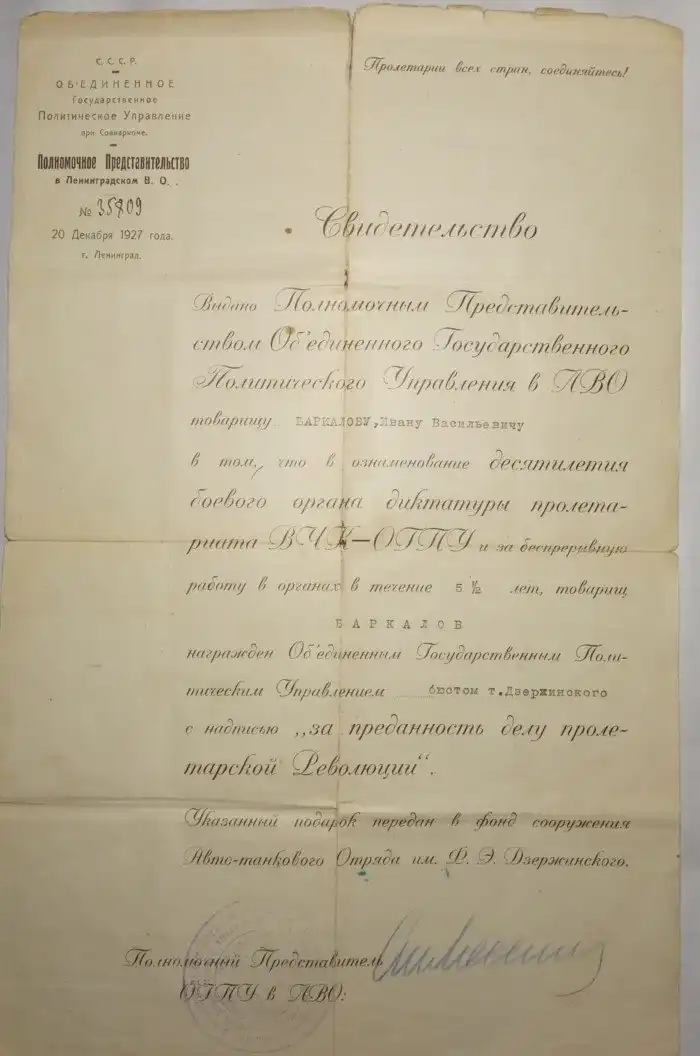 С. С. С. Р.
ОБ'ЕДИНЕННОЕ
Государственное
Политическое Управление
при Совнаркоме.
Полномочное Представительство
в Ленинградском В. О.
№ 35809
20 Декабря 1927 года.
г. Ленинград.
Пролетарии всех стран, соединяйтесь!
Свидетельство
Выдано Полномочным Представитель-
ством Об'единенного Государственного
Политического Управления в ЛВО
товарищу БАРКАЛОВУ, Ивану Васильевичу
в том, что в ознаменование десятилетия
боевого органа диктатуры пролета-
риата ВЧК—ОГПУ и за беспрерывную
работу в органах в течение 5 ½ лет, товарищ
БАРКАЛОВ
награжден Об'единенным Государственным Поли-
тическим Управлением бюстом т.Дзержинского
с надписью „за преданность делу проле-
тарской Революции“.
Указанный подарок передан в фонд сооружения
Авто-танкового Отряда им. Ф. Э. Дзержинского.
Полномочный Представитель
ОГПУ в ЛВО: